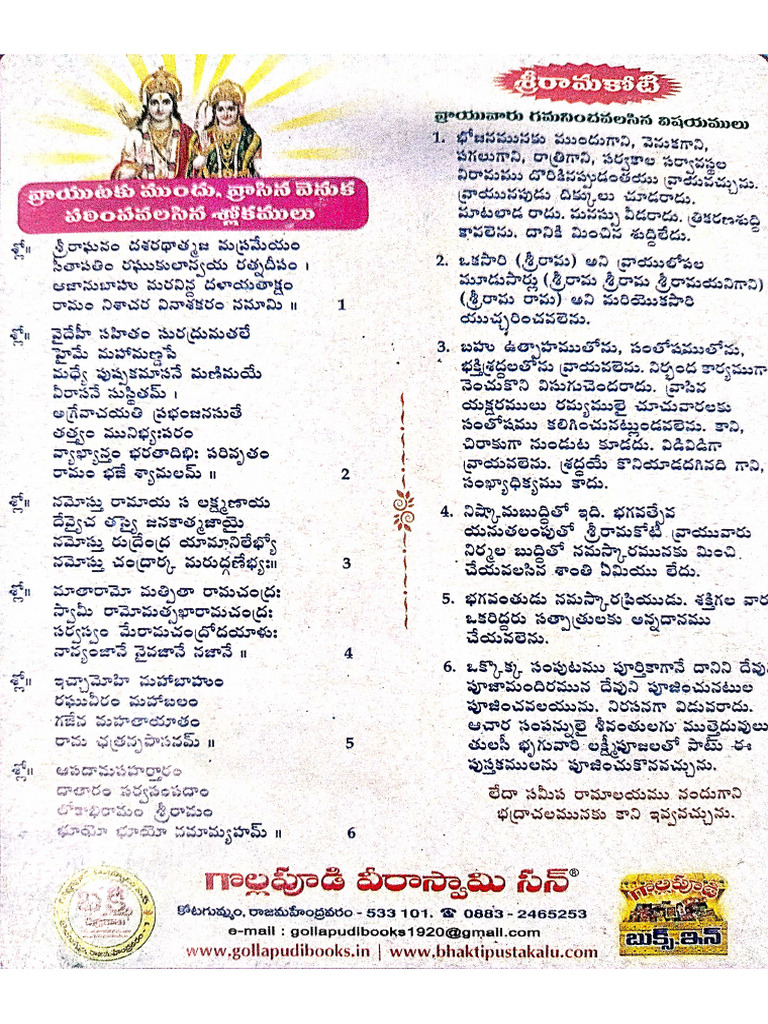 వ్రాయుటకు ముందు, వ్రాసిన వెనుక
పఠింపవలసిన శ్లోకములు
శ్లో॥ శ్రీరాఘవం దశరథాత్మజ మప్రమేయం
సీతాపతిం రఘుకులాన్వయ రత్నదీపం ।
ఆజానుబాహు మరవిన్ద దళాయతాక్షం
రామం నిశాచర వినాశకరం నమామి ॥ 1
శ్లో॥ వైదేహీ సహితం సురద్రుమతలే
హైమే మహామణ్టపే
మధ్యే పుష్పకమాసనే మణిమయే
వీరాసనే సుస్థితమ్ ।
అగ్రేవాచయతి ప్రభంజనసుతే
తత్త్వం మునిభ్యఃపరం
వ్యాఖ్యాన్తం భరతాదిభిః పరివృతం
రామం భజే శ్యామలమ్ ॥ 2
శ్లో॥ నమోస్తు రామాయ స లక్ష్మణాయ
దేవ్యైచ తస్యై జనకాత్మజాయై
నమోస్తు రుద్రేంద్ర యామానిలేభ్యో
నమోస్తు చంద్రార్క మరుద్గణేభ్యః॥ 3
శ్లో॥ మాతారామో మత్పితా రామచంద్రః
స్వామీ రామోమత్సఖారామచంద్రః
సర్వస్వం మేరామచంద్రోదయాళుః
నాన్యంజానే నైవజానే నజానే ॥ 4
శ్లో॥ ఇచ్ఛామోహి మహాబాహుం
రఘువీరం మహాబలం
గజేన మహతాయాతం
రామ ఛత్రనృపాసనమ్ ॥ 5
శ్లో॥ ఆపదామపహర్తారం
దాతారం సర్వసంపదాం
లోకాభిరామం శ్రీరామం
భూయో భూయో నమామ్యహమ్ ॥ 6
శ్రీరామకోటి
వ్రాయువారు గమనించవలసిన విషయములు
1. భోజనమునకు ముందుగాని, వెనుకగాని,
పగలుగాని, రాత్రిగాని, సర్వకాల సర్వావస్థల
విరామము దొరికినప్పుడంతయు వ్రాయవచ్చును.
వ్రాయునపుడు దిక్కులు చూడరాదు.
మాటలాడ రాదు. మనస్సు వీడరాదు. త్రికరణశుద్ధి
కావలెను. దానికి మించిన శుద్ధిలేదు.
2. ఒకసారి (శ్రీరామ) అని వ్రాయులోపల
మూడుసార్లు (శ్రీరామ శ్రీరామ శ్రీరామయనిగాని)
(శ్రీరామ రామ) అని మరియొకసారి
యుచ్చరించవలెను.
3. బహు ఉత్సాహముతోను, సంతోషముతోను,
భక్తిశ్రద్ధలతోను వ్రాయవలెను. నిర్బంధ కార్యముగా
నెంచుకొని విసుగుచెందరాదు. వ్రాసిన
యక్షరములు రమ్యములై చూచువారలకు
సంతోషము కలిగించునట్లుండవలెను. కాని,
చిరాకుగా నుండుట కూడదు. విడివిడిగా
వ్రాయవలెను. శ్రద్ధయే కొనియాడదగినది గాని,
సంఖ్యాధిక్యము కాదు.
4. నిష్కామబుద్ధితో ఇది. భగవత్సేవ
యనుతలంపుతో శ్రీరామకోటి వ్రాయువారు
నిర్మల బుద్ధితో నమస్కారమునకు మించి
చేయవలసిన శాంతి ఏమియు లేదు.
5. భగవంతుడు నమస్కారప్రియుడు. శక్తిగల వారు
ఒకరిద్దరు సత్పాత్రులకు అన్నదానము
చేయవలెను.
6. ఒక్కొక్క సంపుటము పూర్తికాగానే దానిని దేవు
పూజామందిరమున దేవుని పూజించునటుల
పూజించవలయును. నిరసనగా విడువరాదు.
ఆచార సంపన్నులై శీవంతులగు ముత్తెదువులు
తులసీ భృగువారి లక్ష్మీపూజలతో పాటు ఈ
పుస్తకములను పూజించుకొనవచ్చును.
లేదా సమీప రామాలయము నందుగాని
భద్రాచలమునకు కాని ఇవ్వవచ్చును.
గొల్లపూడి వీరాస్వామి సన్®
కోటగుమ్మం, రాజమహేంద్రవరం - 533 101. ☎ 0883 - 2465253
e-mail : gollapudibooks1920@gmail.com
www.gollapudibooks.in | www.bhaktipustakalu.com
భక్తి
గొల్లపూడి
బుక్స్.ఇన్